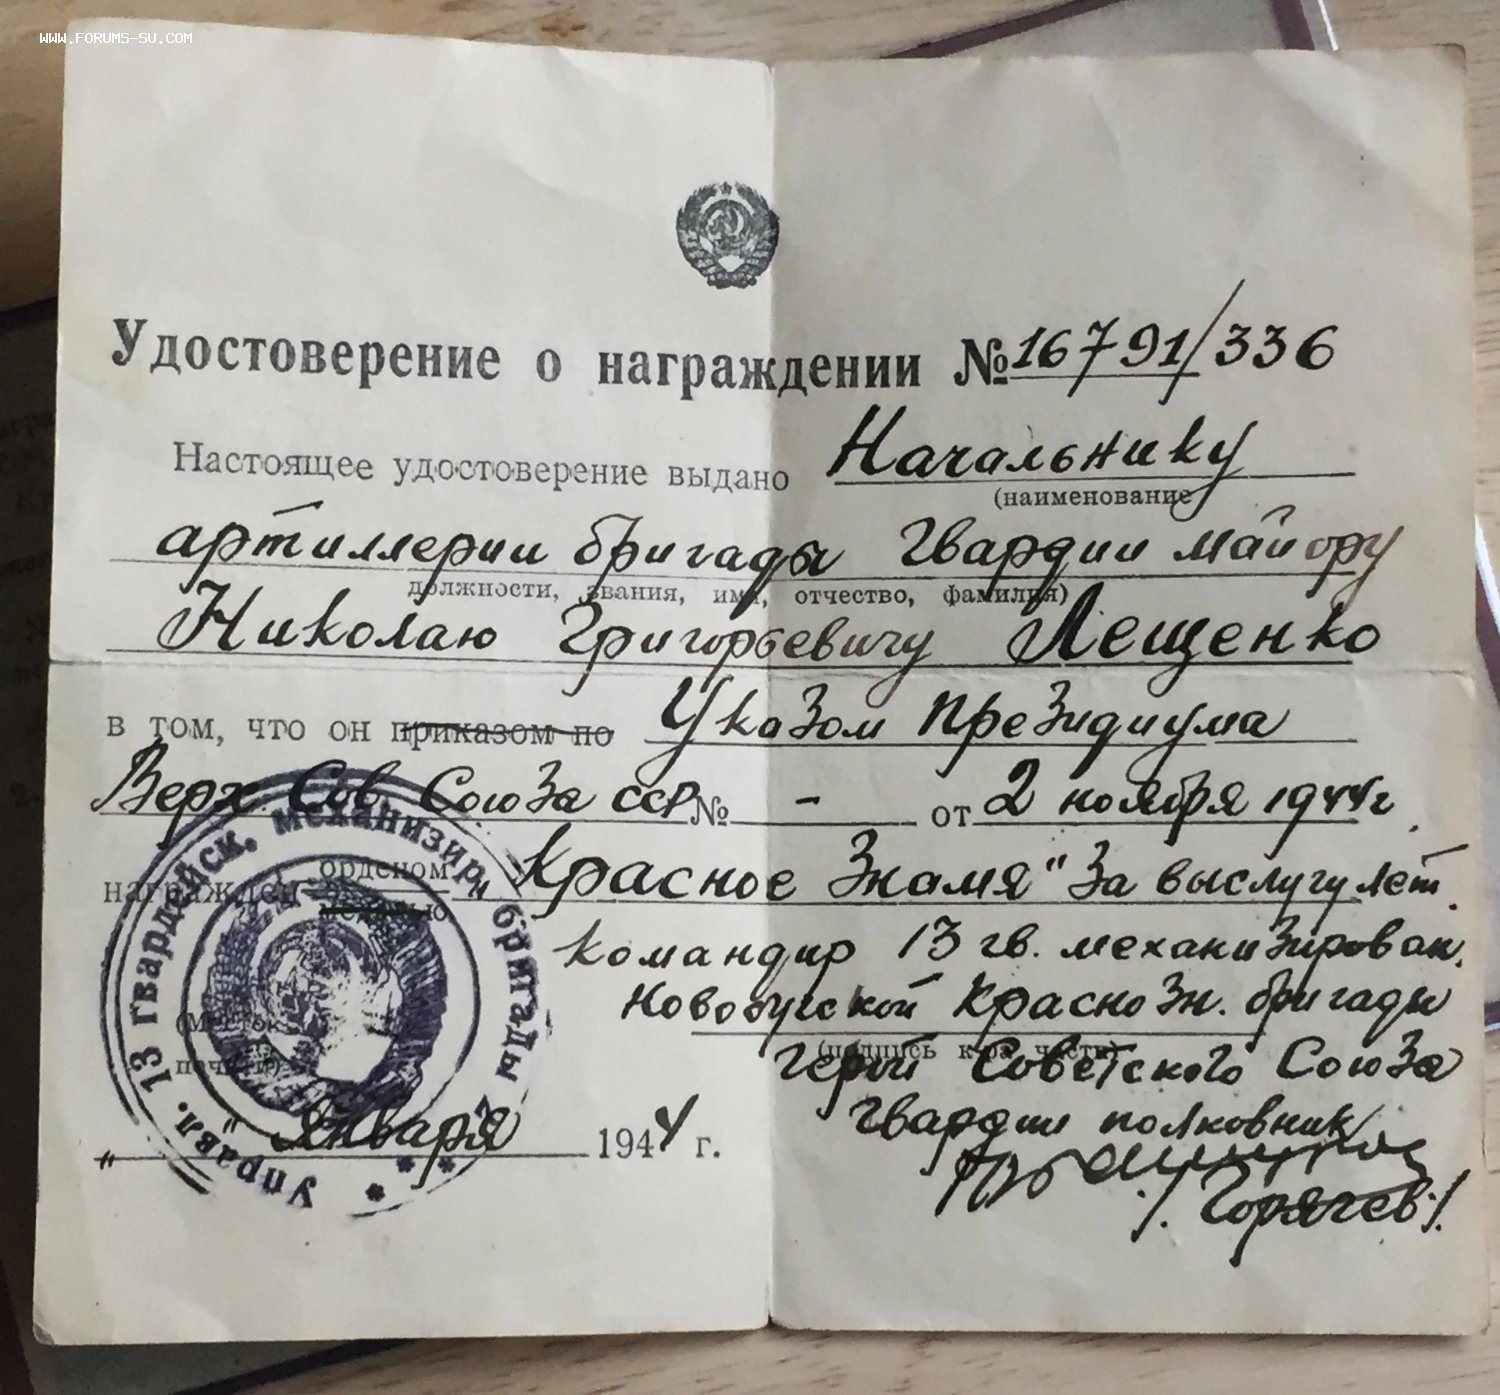 WWW.FORUMS-SU.COM
Удостоверение о награждении №16791/336
Настоящее удостоверение выдано Начальнику
(наименование
артиллерии бригады Гвардии майору
должности, звания, имя, отчество, фамилия)
Николаю Григорьевичу Лещенко
в том, что он приказом по Указом Президиума
Верх. Сов. Союза ССР № - от 2 ноября 1944 г.
награжден орденом „Красное Знамя" За выслугу лет.
медалью
Командир 13 гв. механизирован.
Новобугской Краснозн. бригады
(подпись к-ра части)
Герой Советского Союза
Гвардии полковник
/Горячев/
" Января 1944 г.
Управл. 13 гвардейск. механизир. бригады